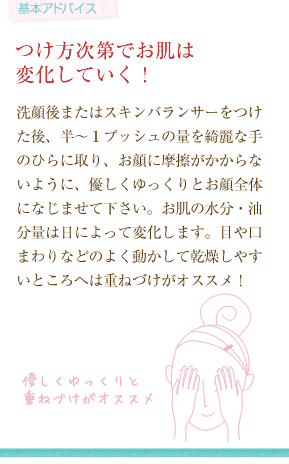 基本アドバイス
つけ方次第でお肌は
変化していく！
洗顔後またはスキンバランサーをつけ
た後、半〜１プッシュの量を綺麗な手
のひらに取り、お顔に摩擦がかからな
いように、優しくゆっくりとお顔全体
になじませて下さい。お肌の水分・油
分量は日によって変化します。目や口
まわりなどのよく動かして乾燥しやす
いところへは重ねづけがオススメ！
優しくゆっくりと
重ねづけがオススメ